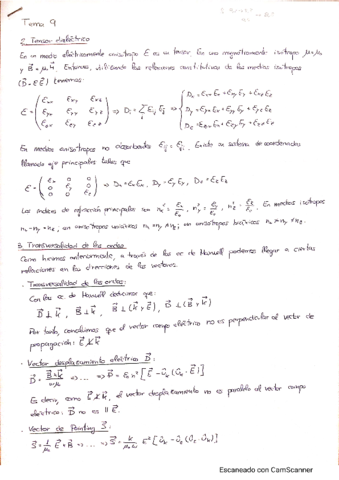 Tema 9
2. Tensor dieléctrico
En un medio eléctricamente anisótropo ε es un tensor. En uno magnéticamente isótropo μ=μ₀
y B⃗ = μ₀H⃗. Entonces, utilizando las relaciones constitutivas de los medios isótropos
(D⃗ = εE⃗) tenemos:
ε = (εxx εxy εxz; εyx εyy εyz; εzx εzy εzz) ⇒ Dᵢ = Σ εᵢⱼ Eⱼ ⇒ { Dx = εxx Ex + εxy Ey + εxz Ez
Dy = εyx Ex + εyy Ey + εyz Ez
Dz = εzx Ex + εzy Ey + εzz Ez
En medios anisótropos no absorbentes εᵢⱼ = εⱼᵢ. Existe un sistema de coordenadas
llamado ejes principales tales que
ε = (εx 0 0; 0 εy 0; 0 0 εz) ⇒ Dx = εx Ex, Dy = εy Ey, Dz = εz Ez
Los índices de refracción principales son nx² = εx/ε₀, ny² = εy/ε₀, nz² = εz/ε₀. En medios isótropos
nx = ny = nz, en anisótropos uniáxicos nx = ny ≠ nz; en anisótropos biáxicos nx ≠ ny ≠ nz.
3. Transversalidad de las ondas
Como hicimos anteriormente, a través de las ec de Maxwell podemos llegar a ciertas
relaciones en las direcciones de los vectores.
· Transversalidad de las ondas:
Con las ec de Maxwell deducimos que:
D⃗ ⊥ k⃗, B⃗ ⊥ k⃗, B⃗ ⊥ (k⃗ x E⃗), D⃗ ⊥ (B⃗ x k⃗)
Por tanto, concluimos que el vector campo eléctrico no es perpendicular al vector de
propagación:
· Vector desplazamiento eléctrico D⃗:
Es decir, como el vector desplazamiento no es paralelo al vector campo
eléctrico: D⃗ no es || E⃗.
· Vector de Pointing S⃗:
Escaneado con CamScanner